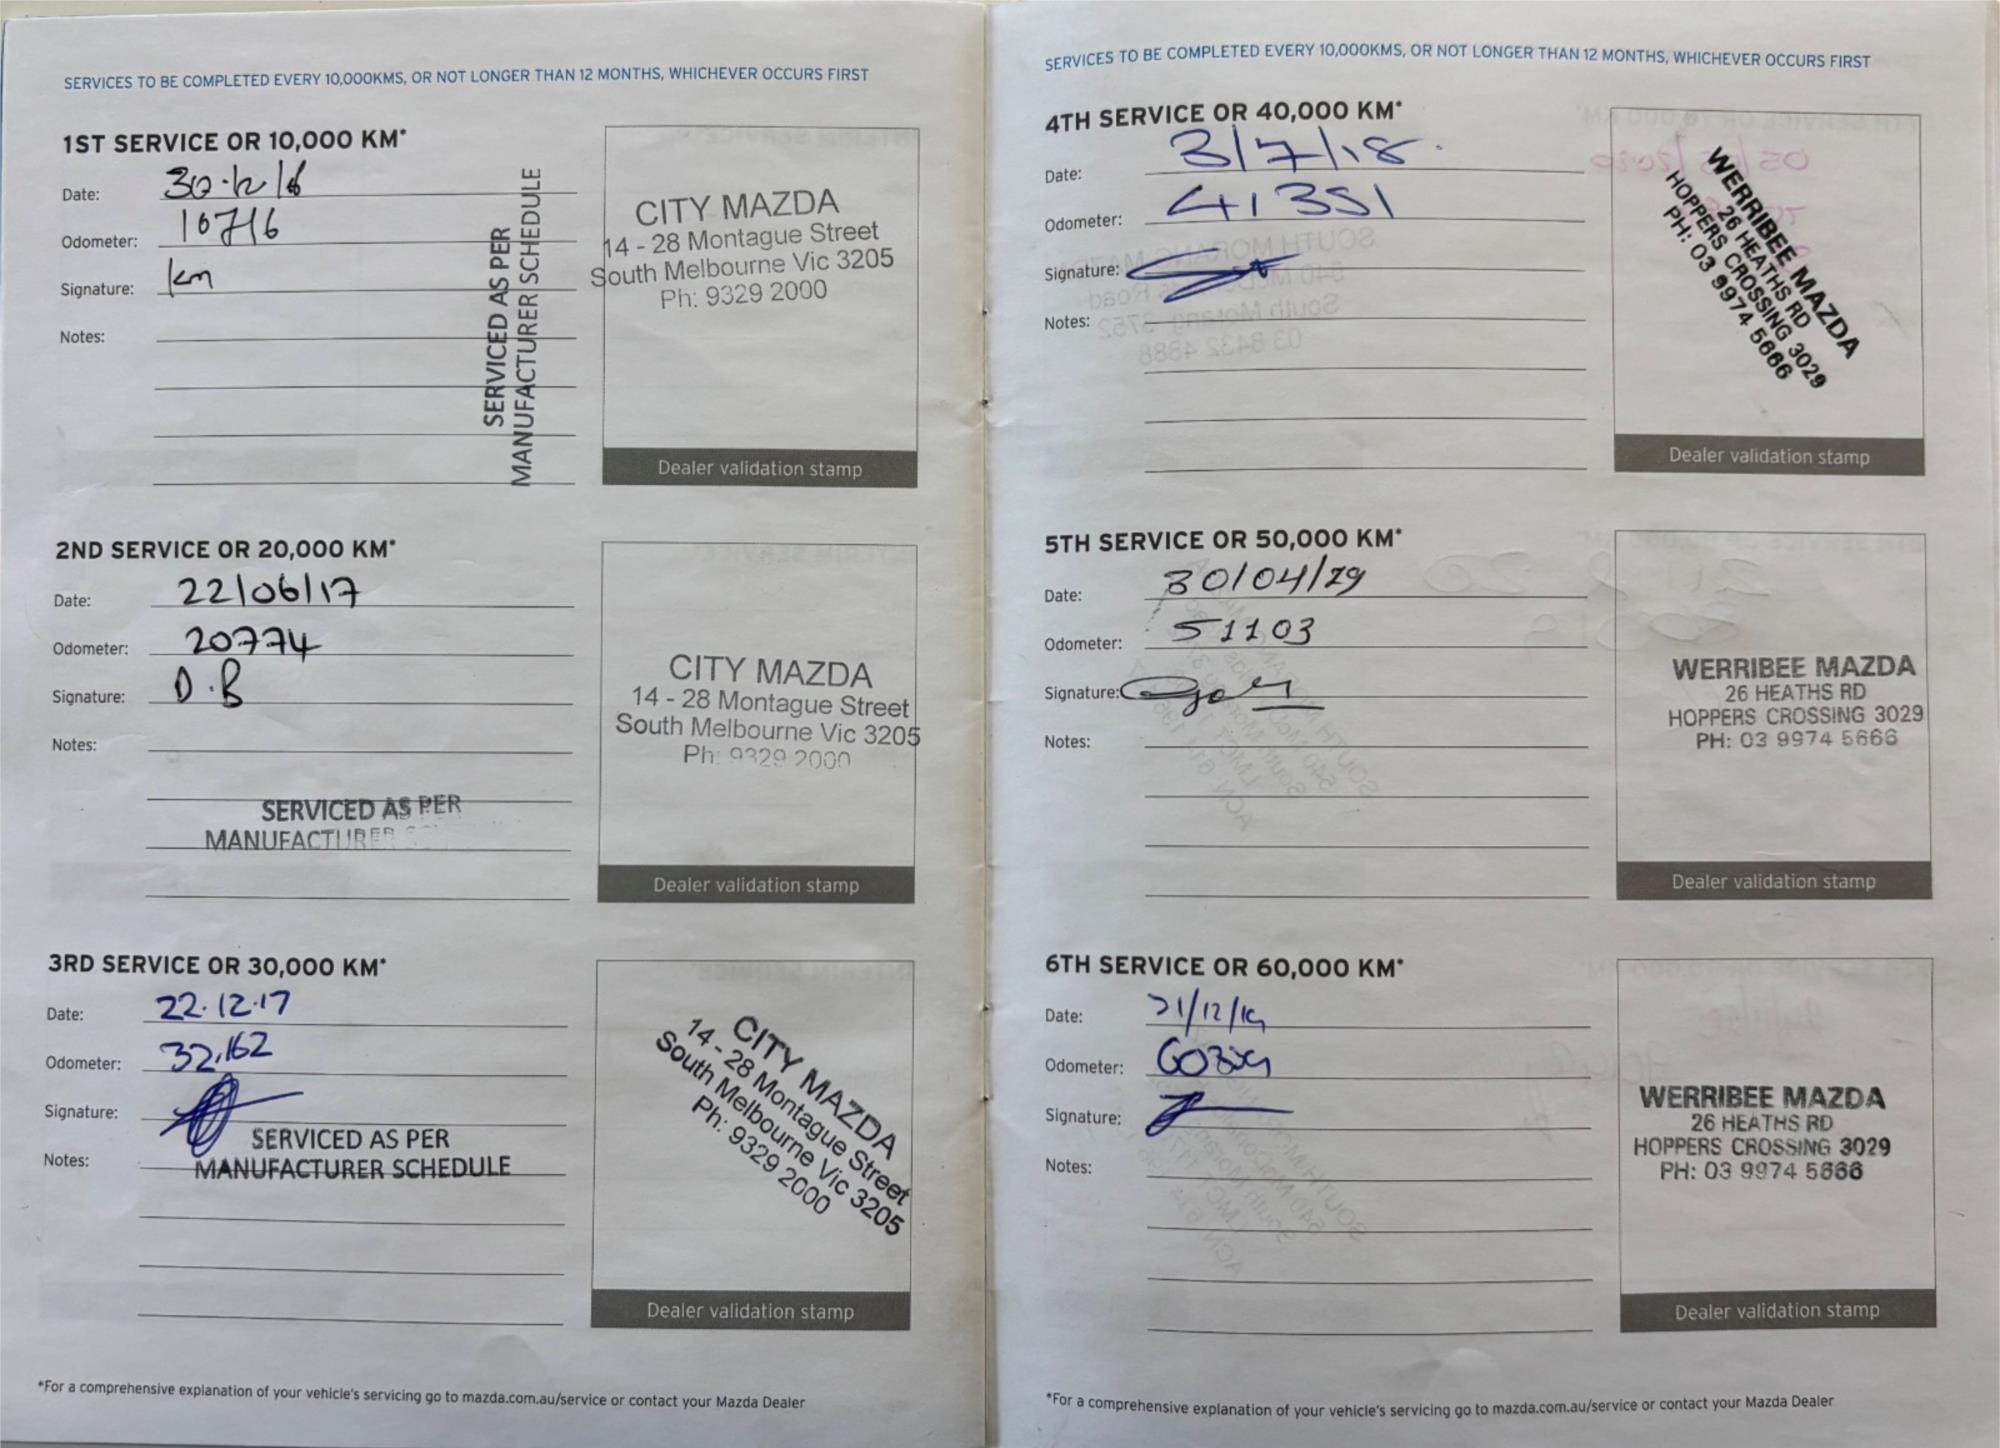 SERVICES TO BE COMPLETED EVERY 10,000KMS, OR NOT LONGER THAN 12 MONTHS, WHICHEVER OCCURS FIRST
1ST SERVICE OR 10,000 KM*
Date: 30.12.16
Odometer: 10716
Signature: km
Notes:
SERVICED AS PER
MANUFACTURER SCHEDULE
CITY MAZDA
14 - 28 Montague Street
South Melbourne Vic 3205
Ph: 9329 2000
Dealer validation stamp
2ND SERVICE OR 20,000 KM*
Date: 22/06/17
Odometer: 20774
Signature: D.B
Notes:
SERVICED AS PER
MANUFACTURER
CITY MAZDA
14 - 28 Montague Street
South Melbourne Vic 3205
Ph: 9329 2000
Dealer validation stamp
3RD SERVICE OR 30,000 KM*
Date: 22.12.17
Odometer: 32,162
Signature:
Notes:
SERVICED AS PER
MANUFACTURER SCHEDULE
CITY MAZDA
14 - 28 Montague Street
South Melbourne Vic 3205
Ph: 9329 2000
Dealer validation stamp
*For a comprehensive explanation of your vehicle's servicing go to mazda.com.au/service or contact your Mazda Dealer
SERVICES TO BE COMPLETED EVERY 10,000KMS, OR NOT LONGER THAN 12 MONTHS, WHICHEVER OCCURS FIRST
4TH SERVICE OR 40,000 KM*
Date: 3/7/18.
Odometer: 41351
Signature:
Notes:
WERRIBEE MAZDA
26 HEATHS RD
HOPPERS CROSSING 3029
PH: 03 9974 5666
Dealer validation stamp
5TH SERVICE OR 50,000 KM*
Date: 30/04/19
Odometer: 51103
Signature:
Notes:
WERRIBEE MAZDA
26 HEATHS RD
HOPPERS CROSSING 3029
PH: 03 9974 5666
Dealer validation stamp
6TH SERVICE OR 60,000 KM*
Date: 21/12/19
Odometer:
Signature:
Notes:
WERRIBEE MAZDA
26 HEATHS RD
HOPPERS CROSSING 3029
PH: 03 9974 5666
Dealer validation stamp
*For a comprehensive explanation of your vehicle's servicing go to mazda.com.au/service or contact your Mazda Dealer